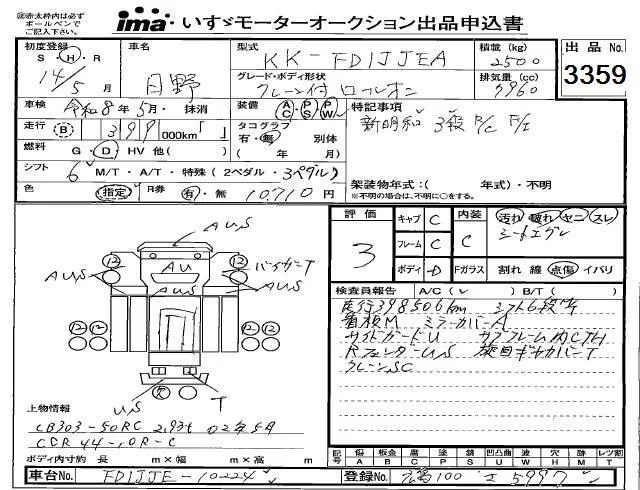 ㊟赤太枠内は必ず
ボールペンで
ご記入ください。
ima いすゞモーターオークション出品申込書
初度登録 S・H・R 14年 5月
車名 日野
型式 KK-FD1JJEA
積載 (kg) 2500
出品No. 3359
グレード・ボディ形状 クレーン付
排気量 (cc) 7960
車検 令和8年 5月・抹消
装備 AC PS PW
特記事項
走行 (B) 399,000km「 」
タコグラフ 有・無 別体 ( 年 月)
新明和 3段 R/C F/I
燃料 G・D・HV 他( )
シフト 6 M/T・A/T・特殊 (2ペダル・3ペダル)
架装物年式:( 年式)・不明
※不明の場合は、不明に○をする。
色 指定 R券 有・無 10710円
評価 3
キャブ C 内装 C 汚れ 破れ ヤニ スレ
フレーム C シートエグレ
ボディ D Fガラス 割れ 線 点傷 イバリ
検査員報告 A/C(✓) B/T( )
走行398506km シフト6段M/T
看板M ミラーカバーA
サイドガードU サブフレーム内CTH
RフェンダーUS
クレーンSC
AUS
AU
AUS
AUS
AUS
12
12
12 12
12 12
R
US
T
上物情報
CB303-50RC 2.93t 02年5月
CDR44-10R-C
ボディ内寸約 長 m×幅 m×高 m
記号 傷A 板金B 腐C 塗P 錆S 凹凸曲U 波W 穴H 跡M レツ割T
車台No. FD1JJE-10224
登録No. 広島100 さ5997